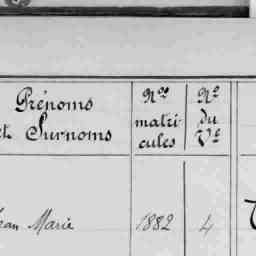 Prénoms
et Surnoms
Nos
matri-
cules
No
du
Vt
Jean Marie
1882
4